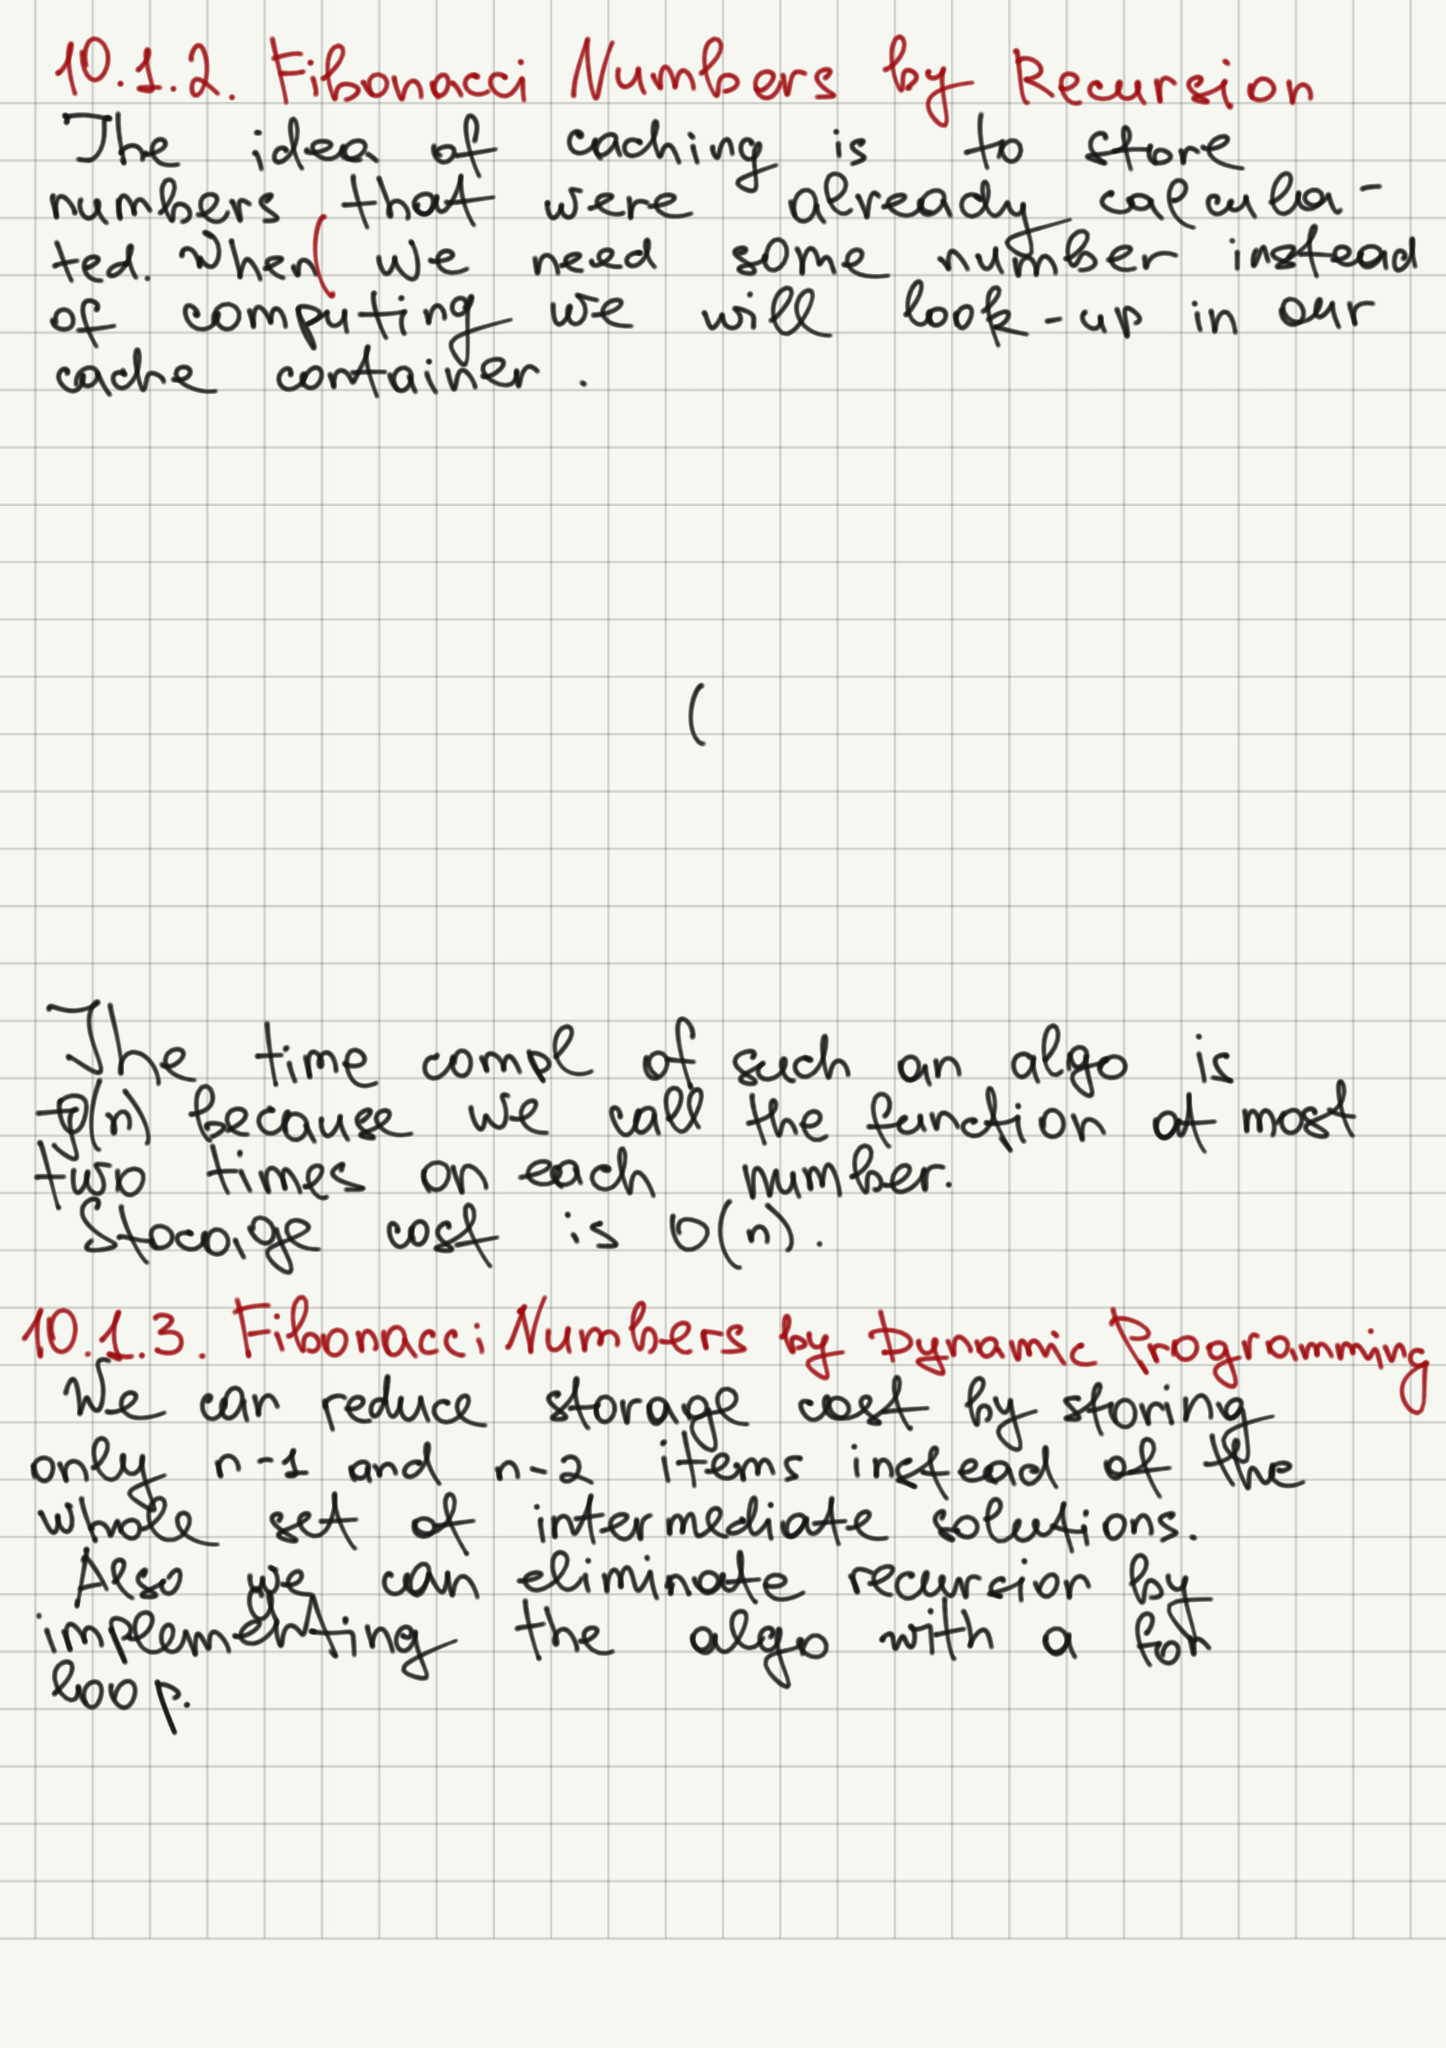 10.1.2. Fibonacci Numbers by Recursion
The idea of caching is to store
numbers that were already calcula-
ted. When ( we need some number instead
of computing we will look-up in our
cache container.
(
The time compl of such an algo is
O(n) because we call the function at most
two times on each number.
Storage cost is O(n).
10.1.3. Fibonacci Numbers by Dynamic Programming
We can reduce storage cost by storing
only n-1 and n-2 items instead of the
whole set of intermediate solutions.
Also we can eliminate recursion by
implementing the algo with a for
loop.